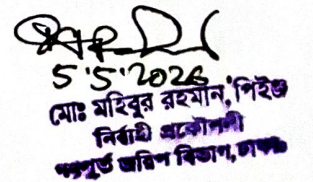 5.5.2026
মোঃ মহিবুর রহমান, পিইঞ্জ
নির্বাহী প্রকৌশলী
গণপূর্ত জরিপ বিভাগ, ঢাকা।